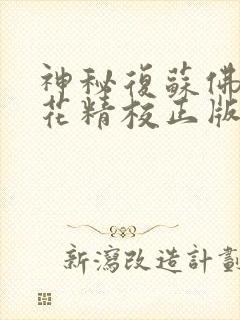 神秘復蘇佛
花精校正版
新瀉改造計劃